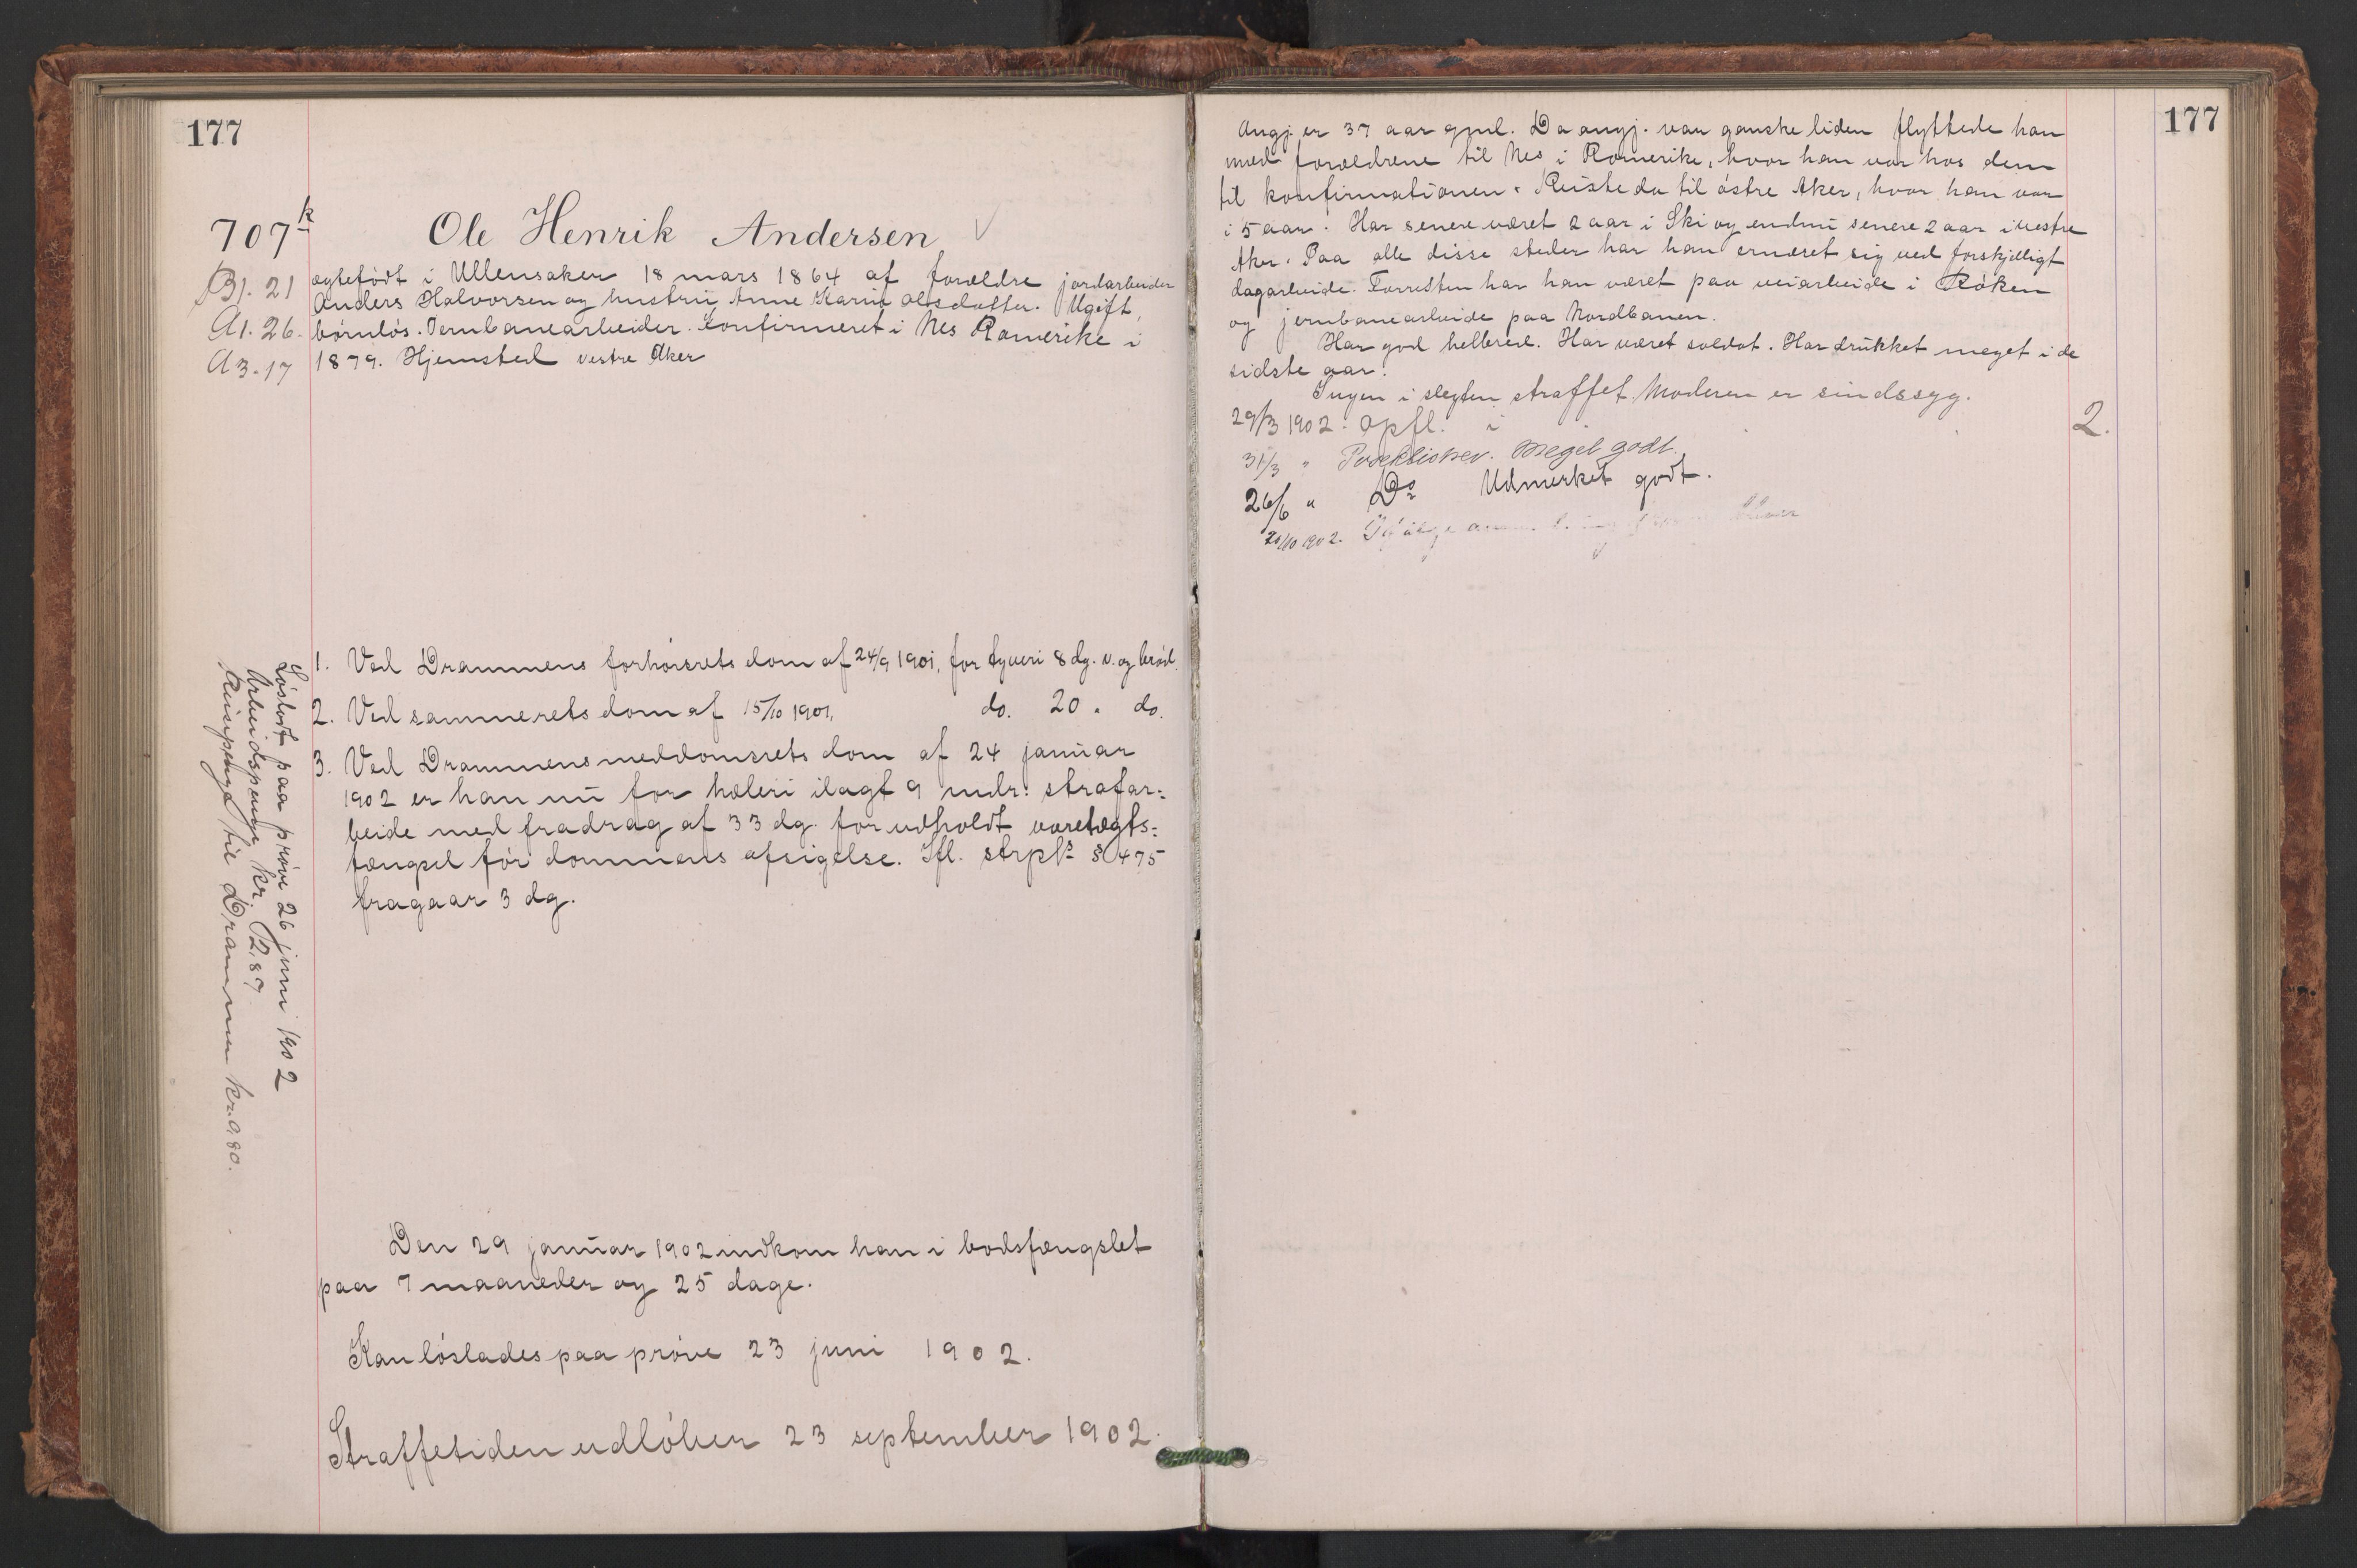 177
707k
Ole Henrik Andersen
B1. 21
A1. 26.
A3. 17
egtefødt i Ullensaker 18 mars 1864 af forældre jordarbeider
Anders Halvorsen og hustru Anne Karin Olsdatter. Ugift,
børnløs. Jernbanearbeider. Konfirmeret i Nes Romerike i
1879. Hjemsted vestre Aker
1. Ved Drammens forhørsrets dom af 24/9 1901, for tyveri 8 dg. v. og brød.
2. Ved sammerets dom af 15/10 1901, do. 20 " do.
3. Ved Drammens meddomsrets dom af 24 januar
1902 er han nu for hæleri ilagt 9 mdr. strafar-
beide med fradrag af 33 dg. for udholdt varetægts-
fængsel før dommens afsigelse. Ifl. strpl. § 475
fragaar 3 dg.
Løsladt paa prøve 26 juni 1902
Arbeidspenge kr. 12,87
Reisepenge til Drammen kr. 0,80.
Den 29 januar 1902 indkom han i bodsfængslet
paa 7 maaneder og 25 dage.
Kan løslades paa prøve 23 juni 1902.
Straffetiden udløber 23 september 1902.
177
Angj. er 37 aar gml. Da angj. var ganske liden flyttede han
med forældrene til Nes i Romerike, hvor han var hos dem
til konfirmationen. Reiste da til østre Aker, hvor han var
i 5 aar. Har senere været 2 aar i Ski og endnu senere 2 aar i vestre
Aker. Paa alle disse steder har han ernæret sig ved forskjelligt
dagarbeide. Forresten har han været paa veiarbeide i Røken
og jernbanearbeide paa Nordbanen.
Har god helbred. Har været soldat. Har drukket meget i de
sidste aar.
Ingen i slegten straffet. Moderen er sindssyg.
29/3 1902. Opfl. i 2.
31/3 " Meget godt.
26/6 " Do Udmerket godt.
20/10 1902. Ifølge